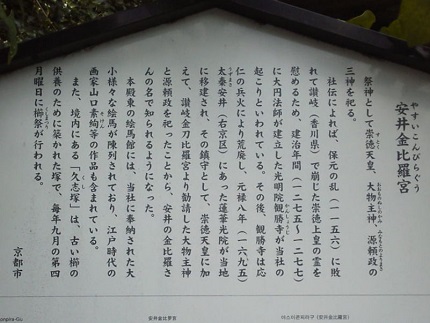 やすいこんぴらぐう
安井金比羅宮
祭神として崇徳天皇、大物主神、源頼政の
三神を祀る。
社伝によれば、保元の乱（一一五六）に敗
れて讃岐（香川県）で崩じた崇徳上皇の霊を
慰めるため、建治年間（一二七五〜一二七七）
に大円法師が建立した光明院観勝寺が当社の
起こりといわれている。その後、観勝寺は応
仁の兵火により荒廃し、元禄八年（一六九五）
太秦安井（右京区）にあった蓮華光院が当地
に移建され、その鎮守として、崇徳天皇に加
えて、讃岐金刀比羅宮より勧請した大物主神
と源頼政を祀ったことから、安井の金比羅さ
んの名で知られるようになった。
本殿東の絵馬館には、当社に奉納された大
小様々な絵馬が陳列されており、江戸時代の
画家山口素絢等の作品も含まれている。
また、境内にある「久志塚」は、古い櫛の
供養のために築かれた塚で、毎年九月の第四
月曜日に櫛祭が行われる。
京都市
onpira-Gu
安井金比罗宫
야스이콘피라구（安井金比羅宮）